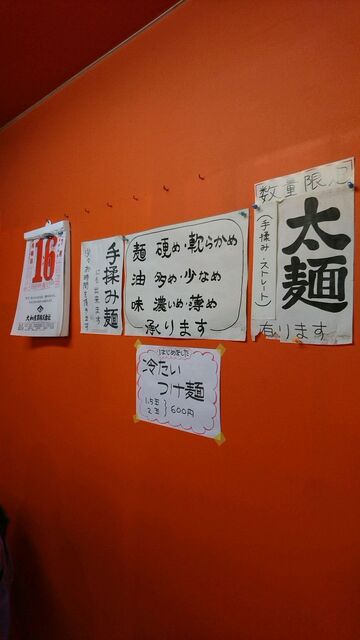 16
大和産業株式会社
手揉み麺
にも出来ます
少々お時間を頂きます
麺 硬め・軟らかめ
油 多め・少なめ
味 濃いめ・薄め
承ります
はじめました
冷たい
つけ麺
1.5玉
2玉
600円
数量限定
太麺
(手揉み・ストレート)
有ります